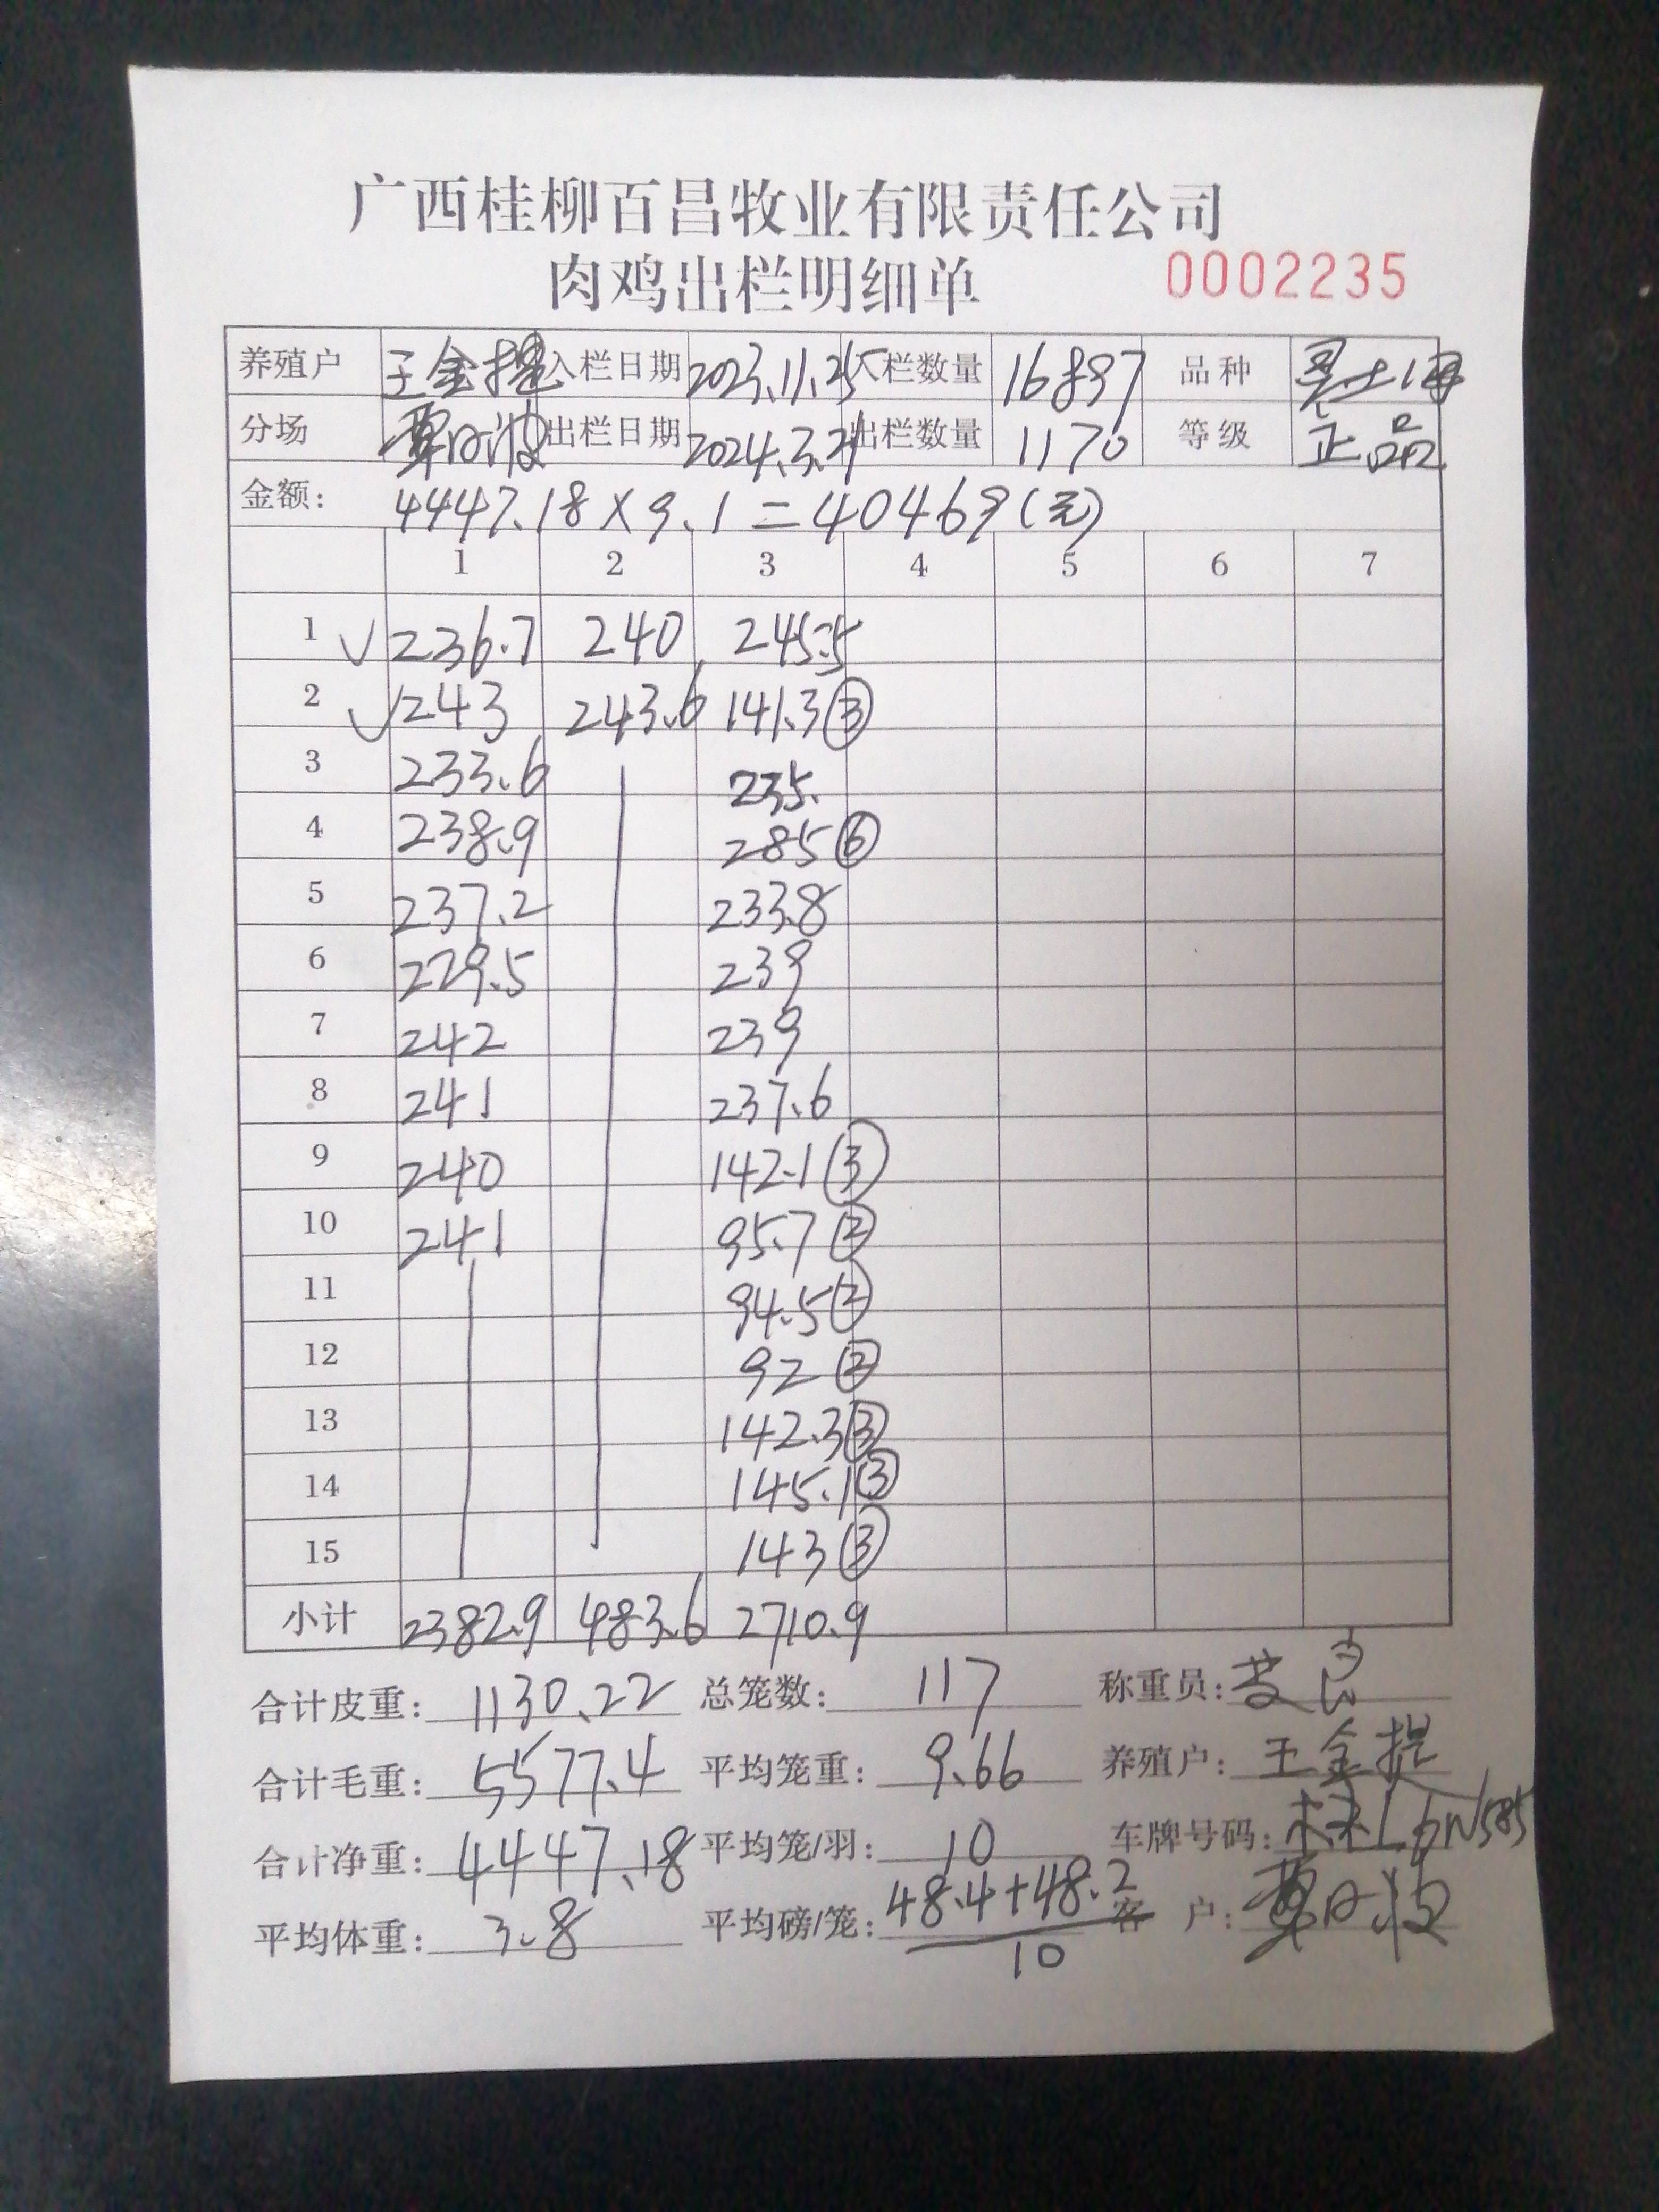 广西桂柳百昌牧业有限责任公司
肉鸡出栏明细单 0002235
养殖户 王金提 入栏日期 2023.11.25 入栏数量 16897 品种 土
分场 覃日波 出栏日期 2024.3.21 出栏数量 1170 等级 正品
金额: 4447.18×9.1=40469(元)
1 2 3 4 5 6 7
1 √ 236.7 240 245.5
2 √ 243 243.6 141.3③
3 233.6 235.
4 238.9 285⑥
5 237.2 233.8
6 229.5 239
7 242 239
8 241 237.6
9 240 142.1③
10 241 95.7②
11 94.5②
12 92②
13 142.3③
14 145.1③
15 143③
小计 2382.9 483.6 2710.9
合计皮重: 1130.22 总笼数: 117 称重员:
合计毛重: 5577.4 平均笼重: 9.66 养殖户: 王金提
合计净重: 4447.18 平均笼/羽: 10 车牌号码: L6N585
平均体重: 3.8 平均磅/笼: 48.4+48.2 客 户: 覃日波
10